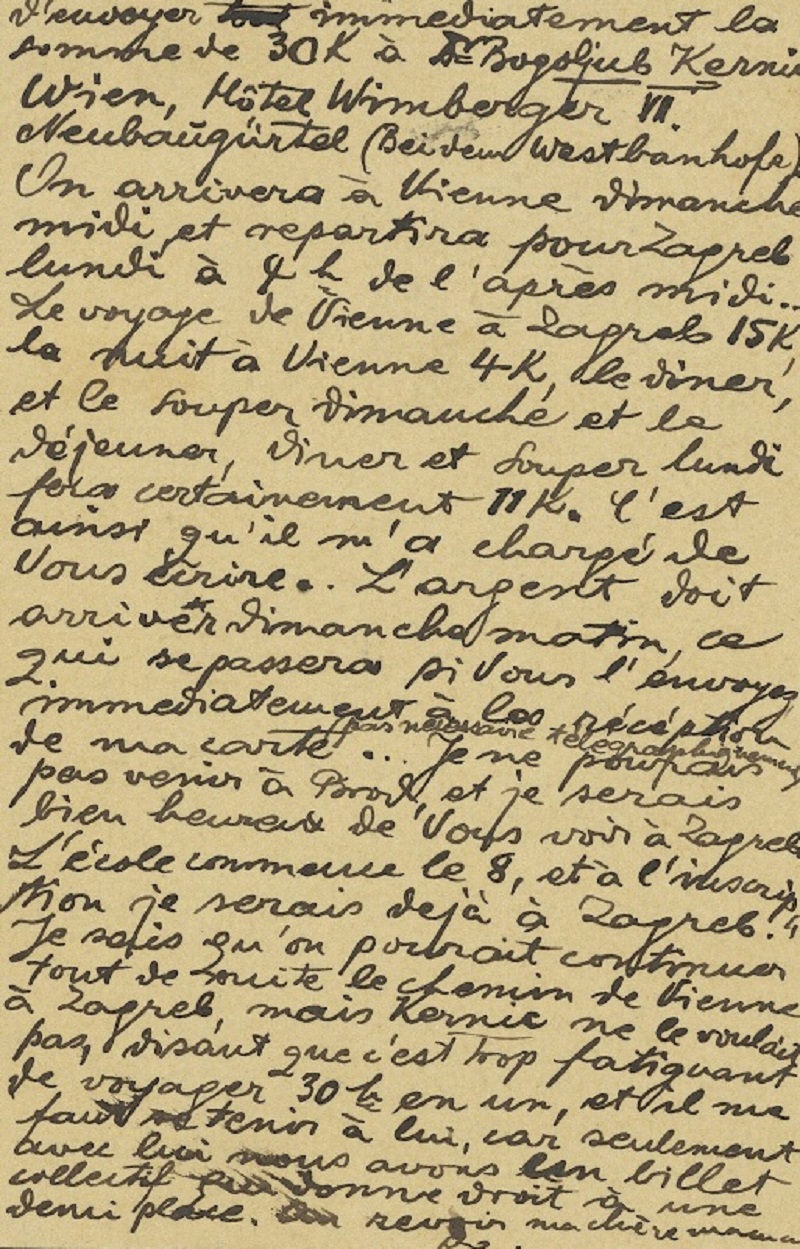 d'envoyer immediatement la
somme de 30K à Dr Bogoljub Kernic
Wien, Hôtel Wimberger VII.
Neubaugürtel (Bei dem Westbanhofe)
On arrivera à Vienne dimanche
midi, et repartira pour Zagreb
lundi à 4 h de l'après midi..
Le voyage de Vienne à Zagreb 15K,
la nuit à Vienne 4K, le diner,
et le souper dimanche et le
déjeuner, diner et souper lundi
fera certainement 11K. C'est
ainsi qu'il m'a chargé de
Vous écrire.. L'argent doit
arriver dimanche matin, ce
qui se passera si Vous l'envoyez
immediatement à la récéption
(pas nécessaire télégraphiquement)
de ma carte ... Je ne pourrais
pas venir à Brod, et je serais
bien heureux de Vous voir à Zagreb
L'école commence le 8, et à l'inscrip
tion je serais dejà à Zagreb.!
Je sais qu'on pourait continuer
tout de suite le chemin de Vienne
à Zagreb, mais Kernic ne le voulait
pas, disant que c'est trop fatiguant
de voyager 30 h en un, et il me
faut tenir à lui, car seulement
avec lui nous avons un billet
collectif qui donne droit à une
demi place. Au revoir ma chère maman